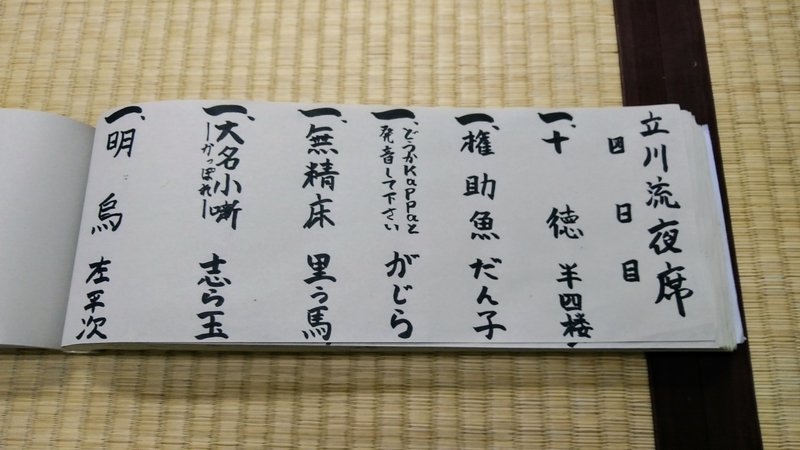 立川流夜席
四日目
一、十徳 半四楼
一、権助魚 だん子
一、どうかKappaと
発音して下さい がじら
一、無精床 里う馬
一、大名小噺
―かっぽれ― 志ら玉
一、明烏 左平次